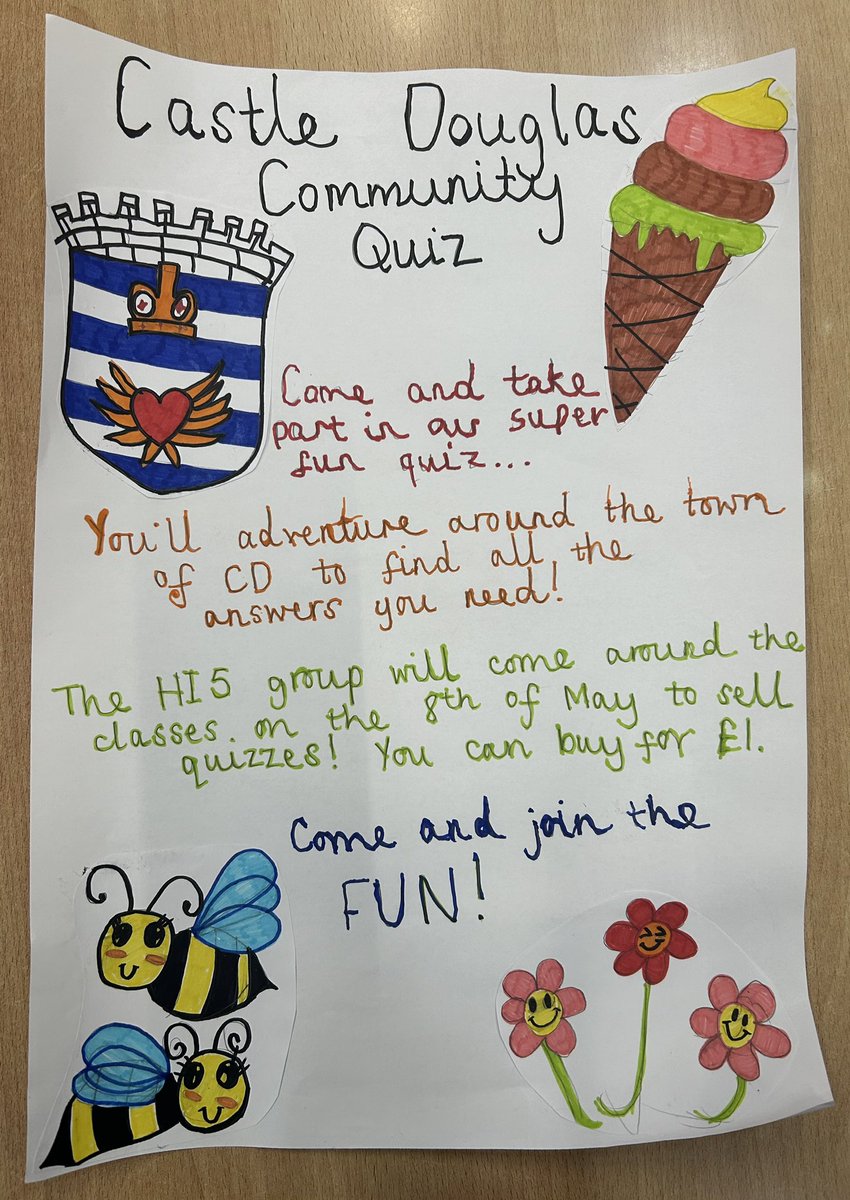 Castle Douglas
Community
Quiz
Come and take
part in our super
fun quiz...
You'll adventure around the town
of CD to find all the
answers you need!
The HI5 group will come around the
classes on the 8th of May to sell
quizzes! You can buy for £1.
Come and join the
FUN!